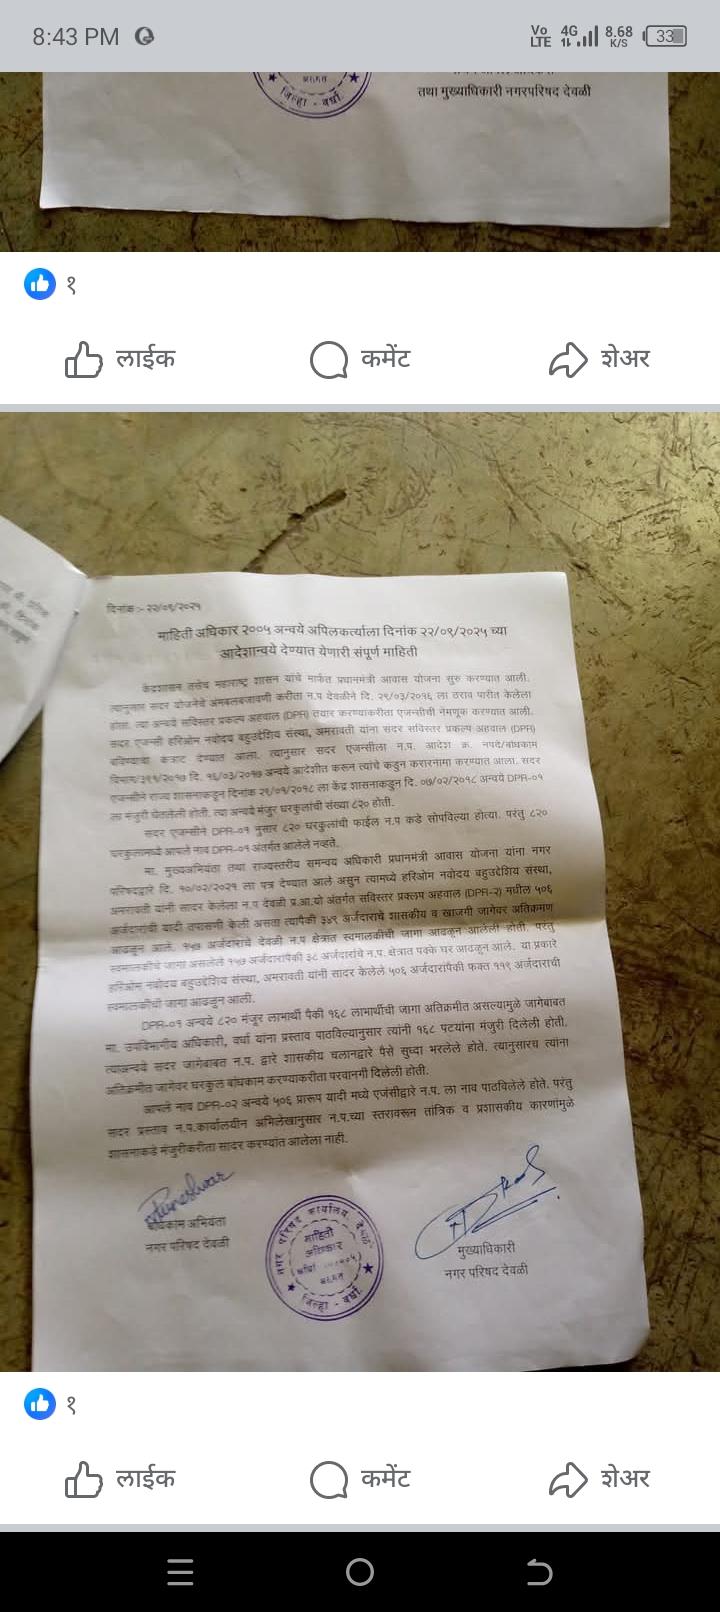 8:43 PM
Vo LTE 4G 8.68 K/S 33
जिल्हा - वर्धा
तथा मुख्याधिकारी नगरपरिषद देवळी
१
लाईक कमेंट शेअर
दिनांक :- २२/०९/२०२५
माहिती अधिकार २००५ अन्वये अपिलकर्त्याला दिनांक २२/०९/२०२५ च्या
आदेशान्वये देण्यात येणारी संपूर्ण माहिती
केंद्रशासन तसेच महाराष्ट्र शासन यांचे मार्फत प्रधानमंत्री आवास योजना सुरु करण्यात आली.
त्यानुसार सदर योजनेचे अंमलबजावणी करीता न.प देवळीने दि. २९/०३/२०१६ ला ठराव पारीत केलेला
होता. त्या अन्वये सविस्तर प्रकल्प अहवाल (DPR) तयार करण्याकरीता एजन्सीची नेमणूक करण्यात आली.
सदर एजन्सी हरिओम नवोदय बहुउद्देशिय संस्था, अमरावती यांना सदर सविस्तर प्रकल्प अहवाल (DPR)
बनिण्याचा कंत्राट देण्यात आला. त्यानुसार सदर एजन्सीला न.प. आदेश क्र. नपदे/बांधकाम
विभाग/३९९/२०१७ दि. १६/०३/२०१७ अन्वये आदेशीत करून त्यांचे कडुन करारनामा करण्यात आला. सदर
एजन्सीने राज्य शासनाकडून दिनांक २९/०१/२०१८ ला केंद्र शासनाकडुन दि. ०७/०२/२०१८ अन्वये DPR-०१
ला मंजुरी घेतलेली होती. त्या अन्वये मंजुर घरकुलांची संख्या ८२० होती.
सदर एजन्सीने DPR-०१ नुसार ८२० घरकुलांची फाईल न.प कडे सोपविल्या होत्या. परंतु ८२०
घरकुलामध्ये आपले नाव DPR-०१ अंतर्गत आलेले नव्हते.
मा. मुख्यअभियंता तथा राज्यस्तरीय समन्वय अधिकारी प्रधानमंत्री आवास योजना यांना नगर
परिषदद्वारे दि. १०/०२/२०२१ ला पत्र देण्यात आले असुन त्यामध्ये हरिओम नवोदय बहुउद्देशिय संस्था,
अमरावती यांनी सादर केलेला न.प देवळी प्र.आ.यो अंतर्गत सविस्तर प्रक्लप अहवाल (DPR-२) मधील ५०६
अर्जदारांची यादी तपासणी केली असता त्यापैकी ३४९ अर्जदाराचे शासकीय व खाजगी जागेवर अतिक्रमण
आढळून आले. १५७ अर्जदारांचे देवळी न.प क्षेत्रात स्वमालकीची जागा आढळून आलेली होती. परंतु
स्वमालकीचे जागा असलेले १५७ अर्जदारांपैकी ३८ अर्जदारांचे न.प. क्षेत्रात पक्के घर आढळून आले. या प्रकारे
हरिओम नवोदय बहुउद्देशिय संस्था, अमरावती यांनी सादर केलेले ५०६ अर्जदारांपैकी फक्त ११९ अर्जदाराची
स्वमालकीची जागा आढळून आली.
DPR-०१ अन्वये ८२० मंजूर लाभार्थी पैकी १६८ लाभार्थीची जागा अतिक्रमीत असल्यामुळे जागेबाबत
मा. उपविभागीय अधिकारी, वर्धा यांना प्रस्ताव पाठविल्यानुसार त्यांनी १६८ पटयांना मंजुरी दिलेली होती.
त्याअन्वये सदर जागेबाबत न.प. द्वारे शासकीय चलानद्वारे पैसे सुध्दा भरलेले होते. त्यानुसारच त्यांना
अतिक्रमीत जागेवर घरकुल बांधकाम करण्याकरीता परवानगी दिलेली होती.
आपले नाव DPR-०२ अन्वये ५०६ प्रारूप यादी मध्ये एजंसीद्वारे न.प. ला नाव पाठविलेले होते. परंतु
सदर प्रस्ताव न.प.कार्यालयीन अभिलेखानुसार न.प.च्या स्तरावरून तांत्रिक व प्रशासकीय कारणांमुळे
शासनाकडे मंजुरीकरीता सादर करण्यांत आलेला नाही.
बांधकाम अभियंता
नगर परिषद देवळी
नगर परिषद कार्यालय, देवळी
माहिती
अधिकार
जिल्हा - वर्धा
मुख्याधिकारी
नगर परिषद देवळी
१
लाईक कमेंट शेअर